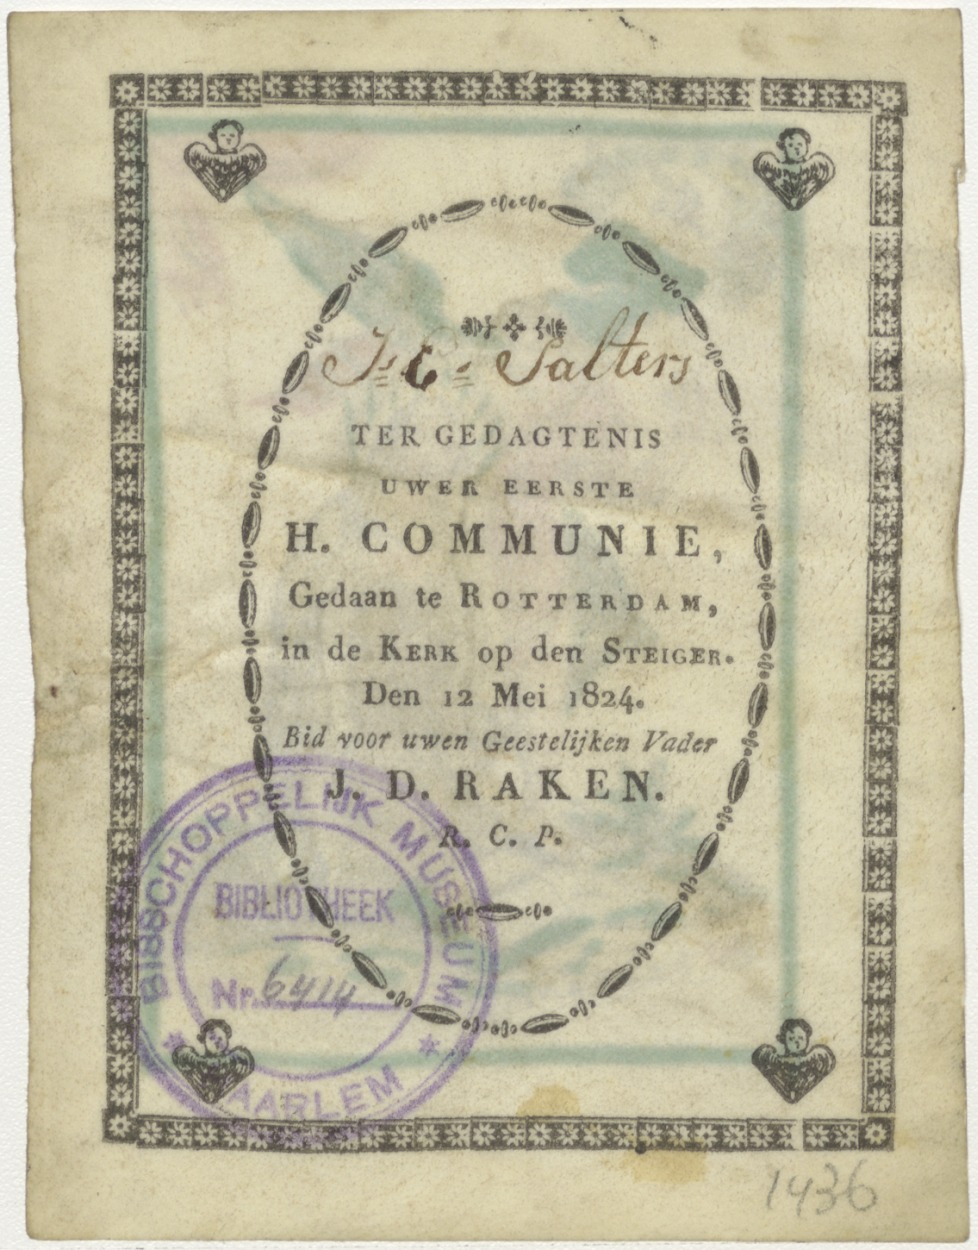 J: C: Salters
TER GEDAGTENIS
UWER EERSTE
H. COMMUNIE,
Gedaan te ROTTERDAM,
in de KERK op den STEIGER.
Den 12 Mei 1824.
Bid voor uwen Geestelijken Vader
J. D. RAKEN.
R. C. P.
BISSCHOPPELIJK MUSEUM
BIBLIOTHEEK
Nr. 6414
HAARLEM
1436